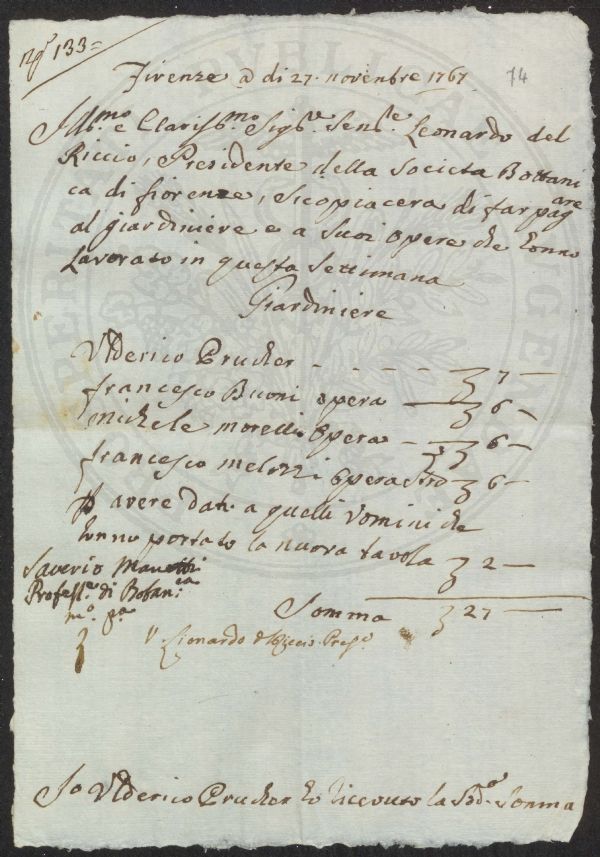 N.º 133=
74
Firenze a di 27. novembre 1767
Ill.mo e Clariss.mo Sig.re Sen.re Leonardo del
Riccio, Presidente della Societa Bottani
ca di fiorenze, si copiacera di far pagare
al giardiniere e a Suoi opere che honno
Lavorato in questa Settimana
Giardiniere
Vlderico Prucher - - - - 7 -
francesco Buoni opera - 6 -
michele morelli opera - 6 -
francesco melozzi opera - 6 -
P avere dati a quelli Vomini che
honno portato la nuova tavola 2 -
Saverio Manetti
Profess.e di Botan.ca
m.o p.a
Somma 27 -
V. Lionardo d Riccio Pres.e
Io Vlderico Prucher ho Riceouto la Sud.a Somma